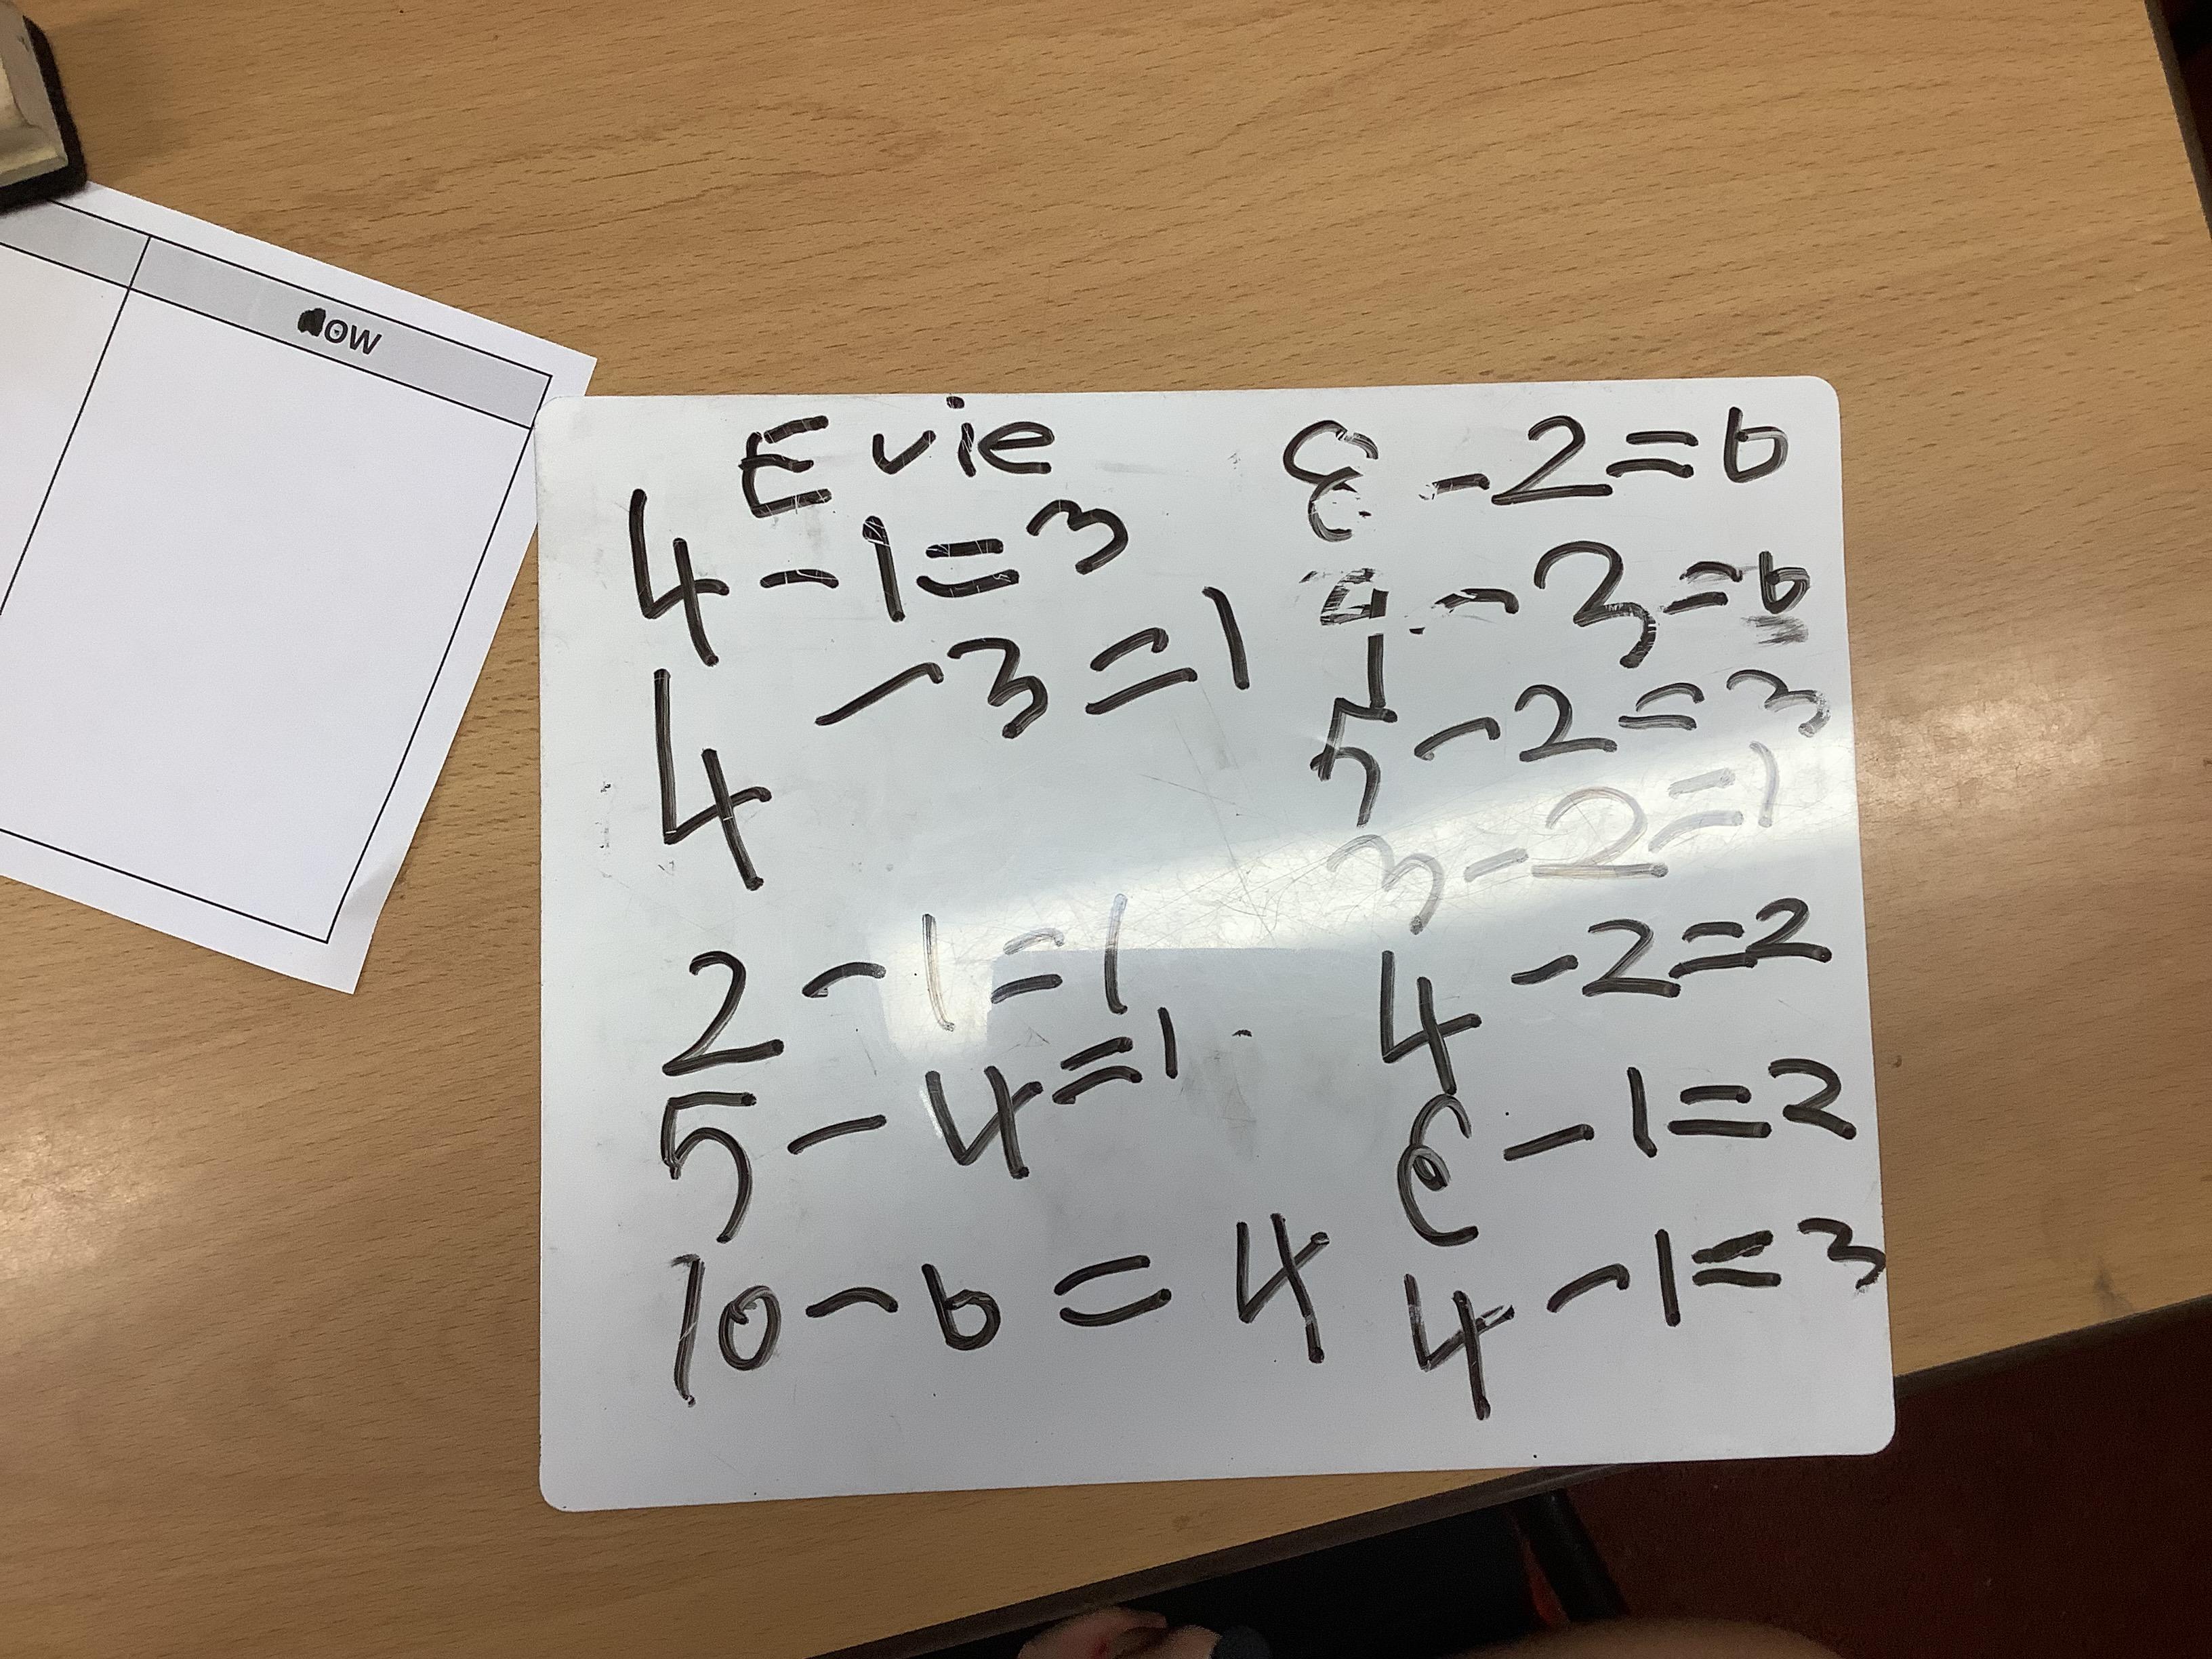 Evie
4 - 1 = 3
4 - 3 = 1
2 - 1 = 1
5 - 4 = 1
10 - 6 = 4
8 - 2 = 6
- 3 = 6
5 - 2 = 3
3 - 2 = 1
4 - 2 = 2
3 - 1 = 2
4 - 1 = 3